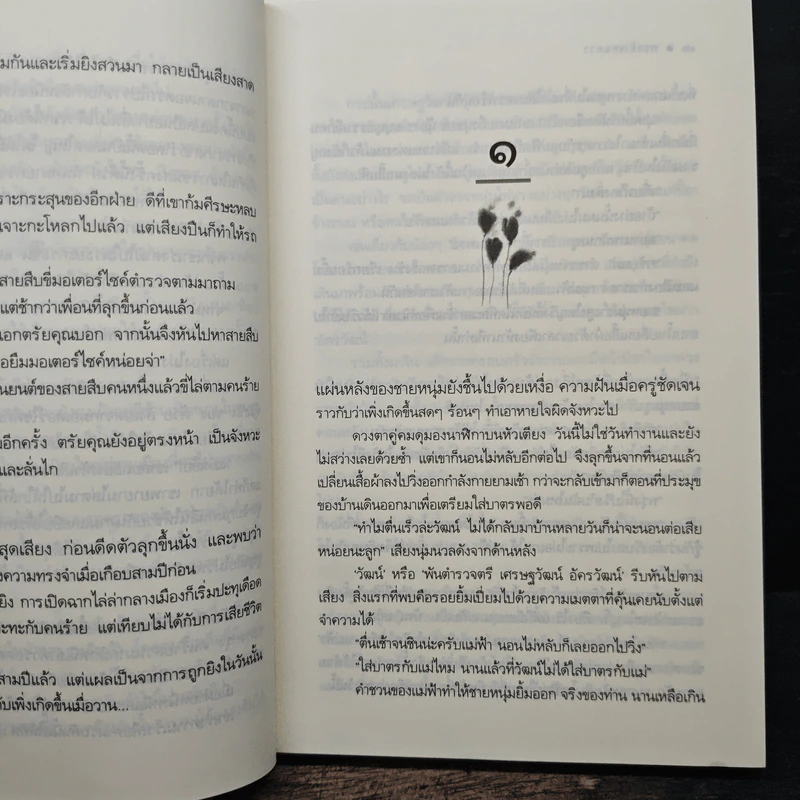 มกันและเริ่มยิงสวนมา กลายเป็นเสียงสาด
ราะกระสุนของอีกฝ่าย ดีที่เขาก้มศีรษะหลบ
นเจาะกะโหลกไปแล้ว แต่เสียงปืนก็ทำให้รถ
สายสืบขี่มอเตอร์ไซค์ตำรวจตามมาถาม
แต่ช้ากว่าเพื่อนที่ลุกขึ้นก่อนแล้ว
เอกตรัยคุณบอก จากนั้นจึงหันไปหาสายสืบ
อยืมมอเตอร์ไซค์หน่อยจ่า”
นยนต์ของสายสืบคนหนึ่งแล้วขี่ไล่ตามคนร้าย
มอีกครั้ง ตรัยคุณยังอยู่ตรงหน้า เป็นจังหวะ
และลั่นไก
สุดเสียง ก่อนดีดตัวลุกขึ้นนั่ง และพบว่า
งความทรงจำเมื่อเกือบสามปีก่อน
ยิง การเปิดฉากไล่ล่ากลางเมืองก็เริ่มปะทุเดือด
ะทะกับคนร้าย แต่เทียบไม่ได้กับการเสียชีวิต
สามปีแล้ว แต่แผลเป็นจากการถูกยิงในวันนั้น
ับเพิ่งเกิดขึ้นเมื่อวาน...
๑
แผ่นหลังของชายหนุ่มยังชื้นไปด้วยเหงื่อ ความฝันเมื่อครู่ชัดเจน
ราวกับว่าเพิ่งเกิดขึ้นสดๆ ร้อนๆ ทำเอาหายใจผิดจังหวะไป
ดวงตาคู่คมดุมองนาฬิกาบนหัวเตียง วันนี้ไม่ใช่วันทำงานและยัง
ไม่สว่างเลยด้วยซ้ำ แต่เขาก็นอนไม่หลับอีกต่อไป จึงลุกขึ้นจากที่นอนแล้ว
เปลี่ยนเสื้อผ้าลงไปวิ่งออกกำลังกายยามเช้า กว่าจะกลับเข้ามาก็ตอนที่ประมุข
ของบ้านเดินออกมาเพื่อเตรียมใส่บาตรพอดี
“ทำไมตื่นเร็วล่ะวัฒน์ ไม่ได้กลับมาบ้านหลายวันก็น่าจะนอนต่อเสีย
หน่อยนะลูก” เสียงนุ่มนวลดังจากด้านหลัง
‘วัฒน์’ หรือ ‘พันตำรวจตรี เศรษฐวัฒน์ อัครวัฒน์’ รีบหันไปตาม
เสียง สิ่งแรกที่พบคือรอยยิ้มเปี่ยมไปด้วยความเมตตาที่คุ้นเคยนับตั้งแต่
จำความได้
“ตื่นเช้าจนชินน่ะครับแม่ฟ้า นอนไม่หลับก็เลยออกไปวิ่ง”
“ใส่บาตรกับแม่ไหม นานแล้วที่วัฒน์ไม่ได้ใส่บาตรกับแม่”
คำชวนของแม่ฟ้าทำให้ชายหนุ่มยิ้มออก จริงของท่าน นานเหลือเกิน